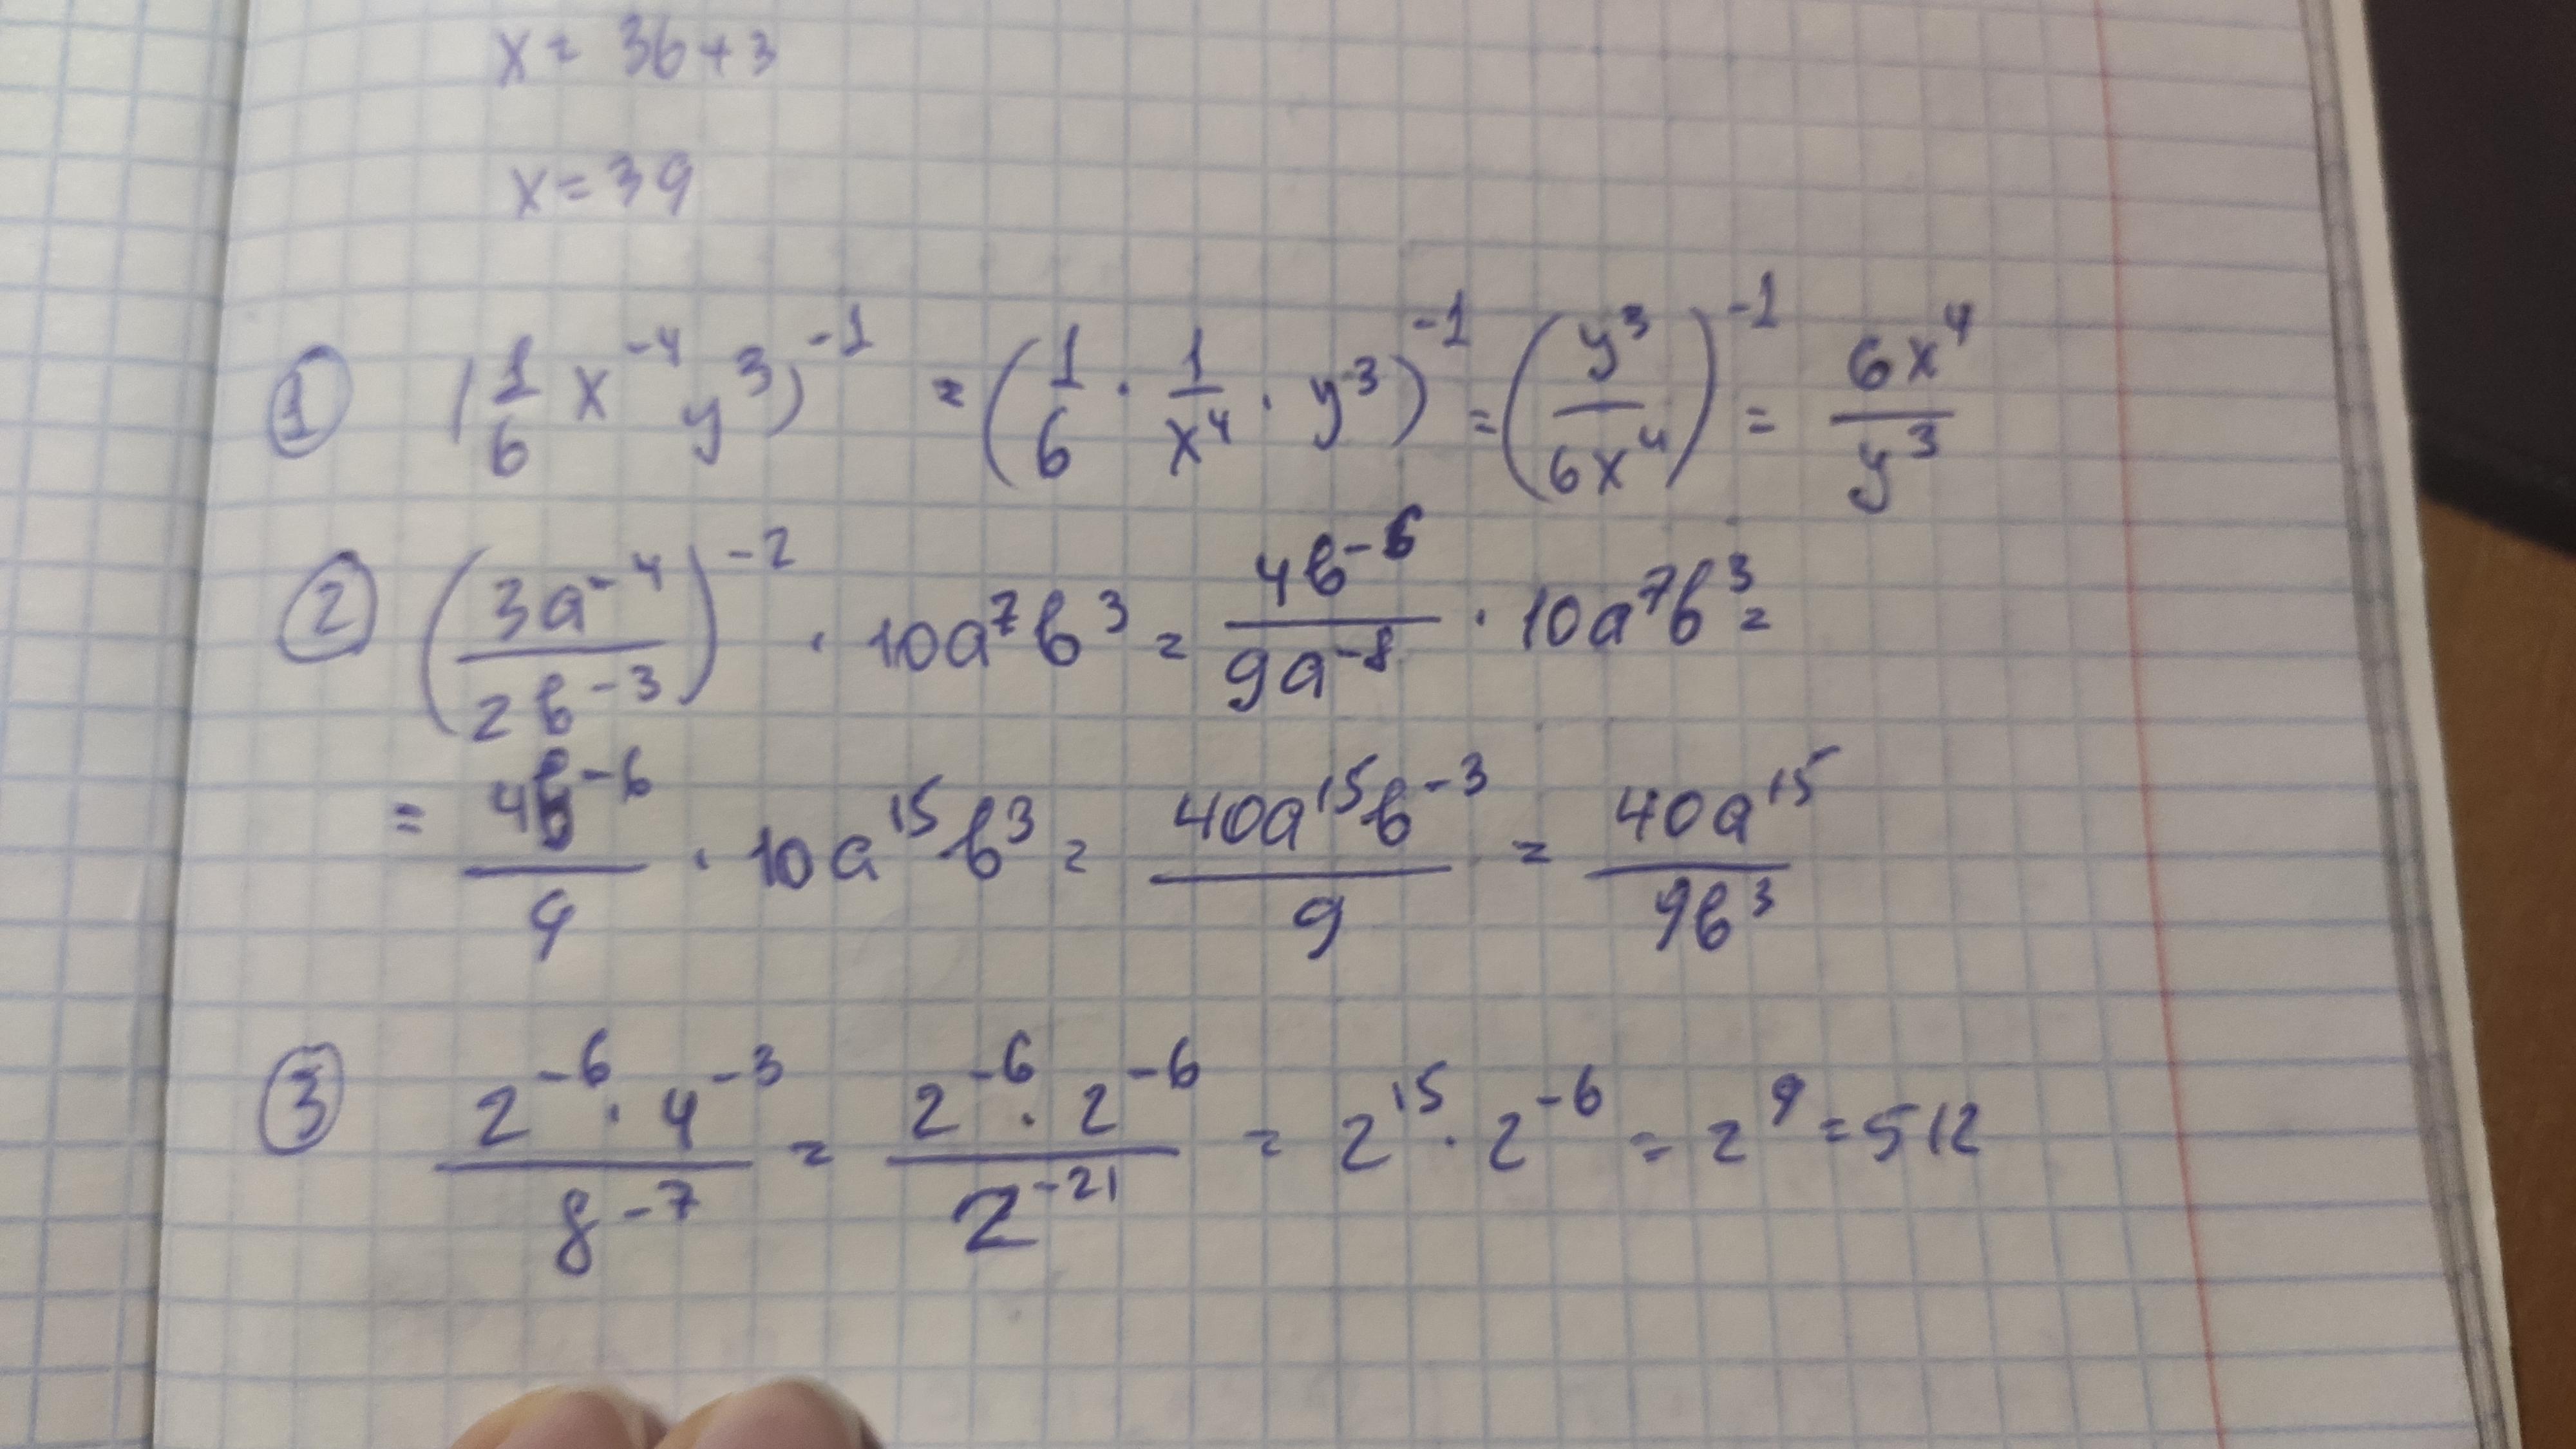 x = 36 + 3
x = 39
① (1/6 x⁻⁴ y³)⁻¹ = (1/6 · 1/x⁴ · y³)⁻¹ = (y³/6x⁴)⁻¹ = 6x⁴/y³
② (3a⁻⁴/2b⁻³)⁻² · 10a⁷b³ = 4b⁻⁶/9a⁻⁸ · 10a⁷b³ =
= 4b⁻⁶/9 · 10a¹⁵b³ = 40a¹⁵b⁻³/9 = 40a¹⁵/9b³
③ 2⁻⁶ · 4⁻³/8⁻⁷ = 2⁻⁶ · 2⁻⁶/2⁻²¹ = 2¹⁵ · 2⁻⁶ = 2⁹ = 512